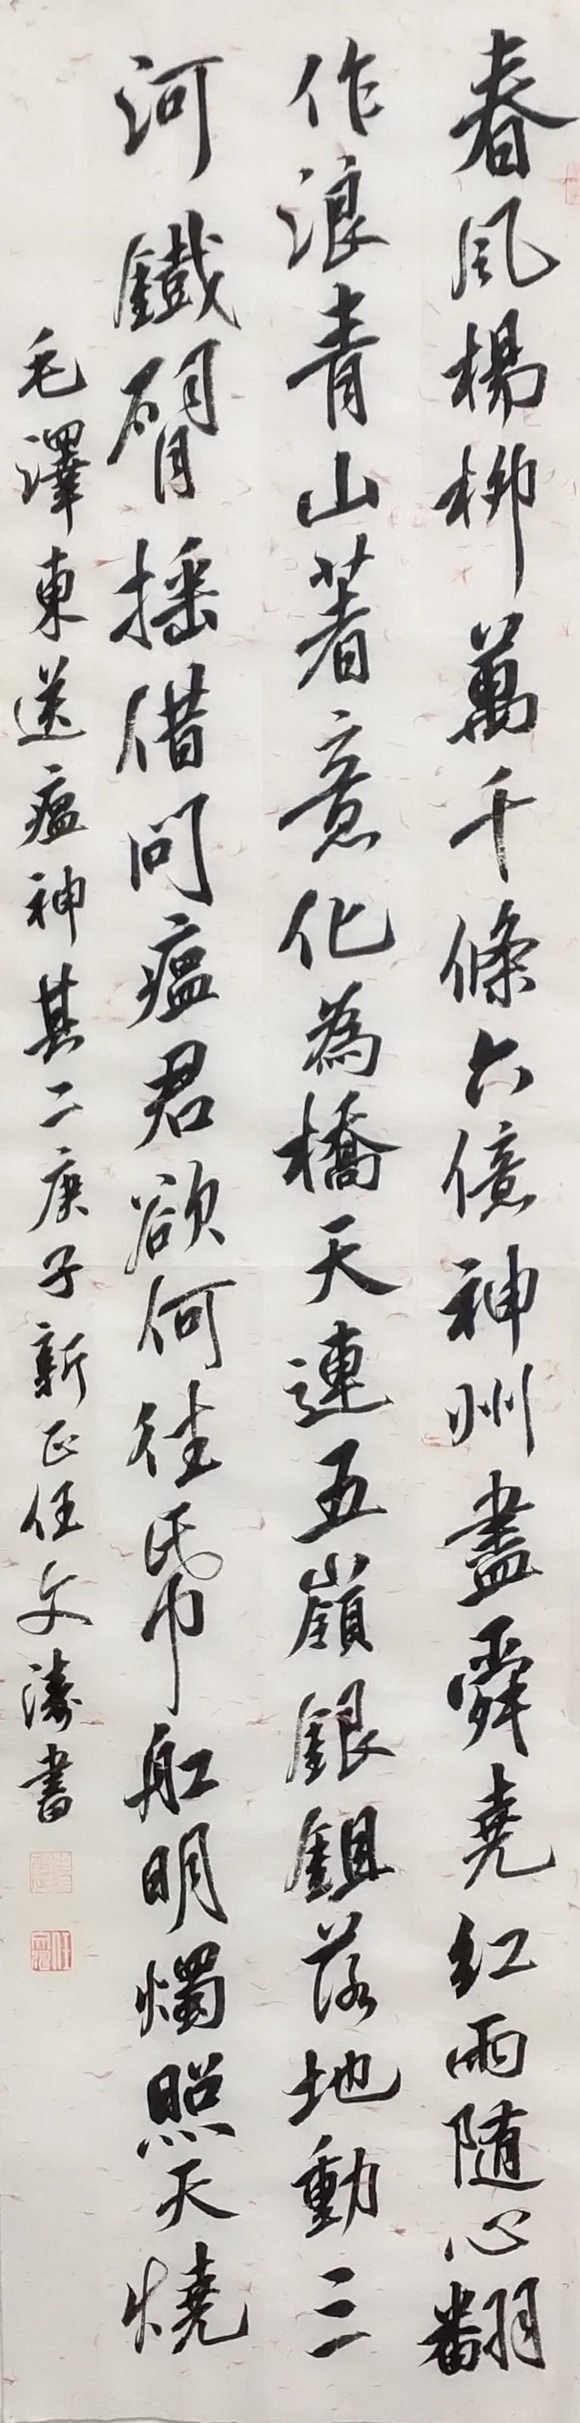 春風楊柳萬千條六億神州盡舜堯紅雨隨心翻
作浪青山著意化為橋天連五嶺銀鉏落地動三
河鐵臂搖借問瘟君欲何往帋船明燭照天燒
毛澤東送瘟神其二庚子新正任文濤書